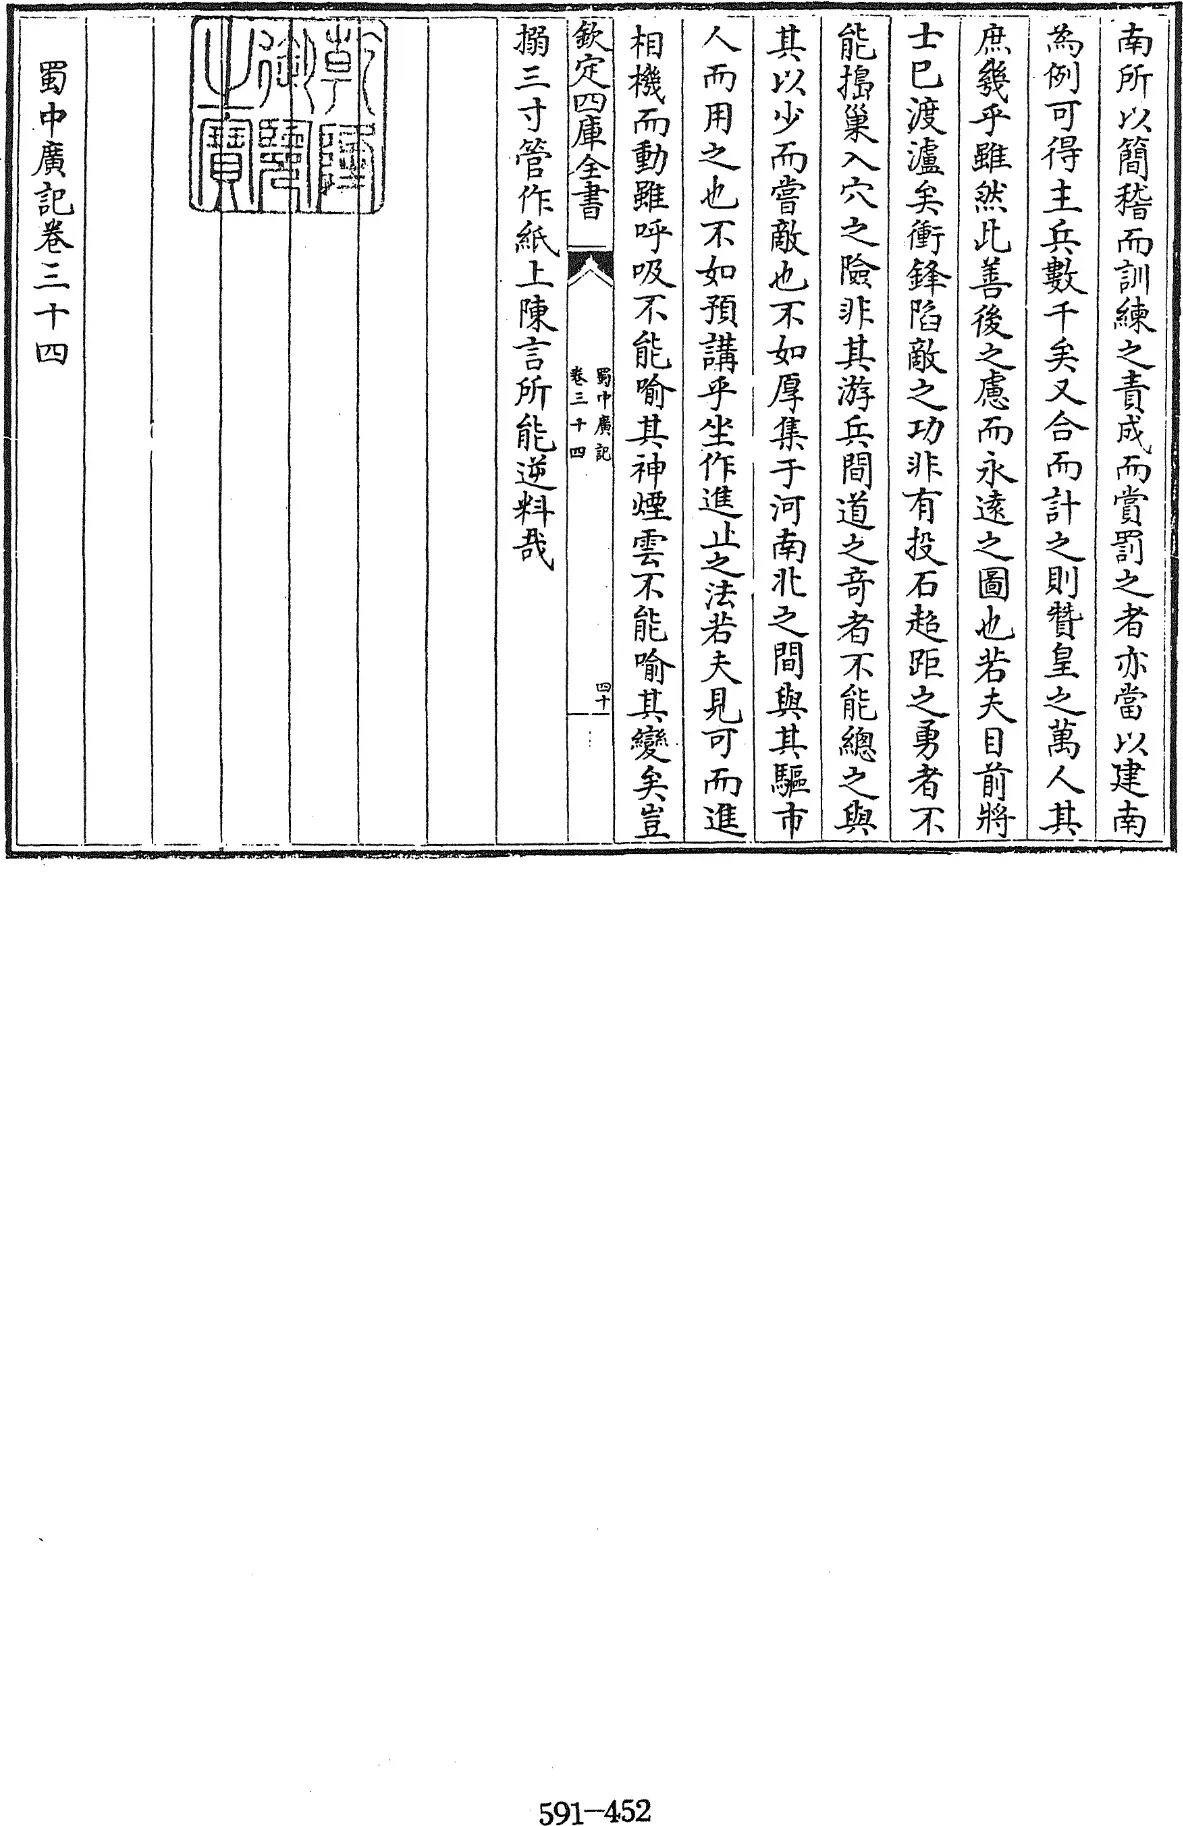 南所以簡稽而訓練之責成而賞罰之者亦當以建南
為例可得主兵數千矣又合而計之則贊皇之萬人其
庶幾乎雖然此善後之慮而永遠之圖也若夫目前將
士已渡瀘矣衝鋒陷敵之功非有投石超距之勇者不
能搗巢入穴之險非其游兵間道之奇者不能總之與
其以少而嘗敵也不如厚集于河南北之間與其驅市
人而用之也不如預講乎坐作進止之法若夫見可而進
相機而動雖呼吸不能喻其神煙雲不能喻其變矣豈
欽定四庫全書
蜀中廣記
卷三十四
四十
搦三寸管作紙上陳言所能逆料哉
乾隆
御覽
之寶
蜀中廣記卷三十四
591-452